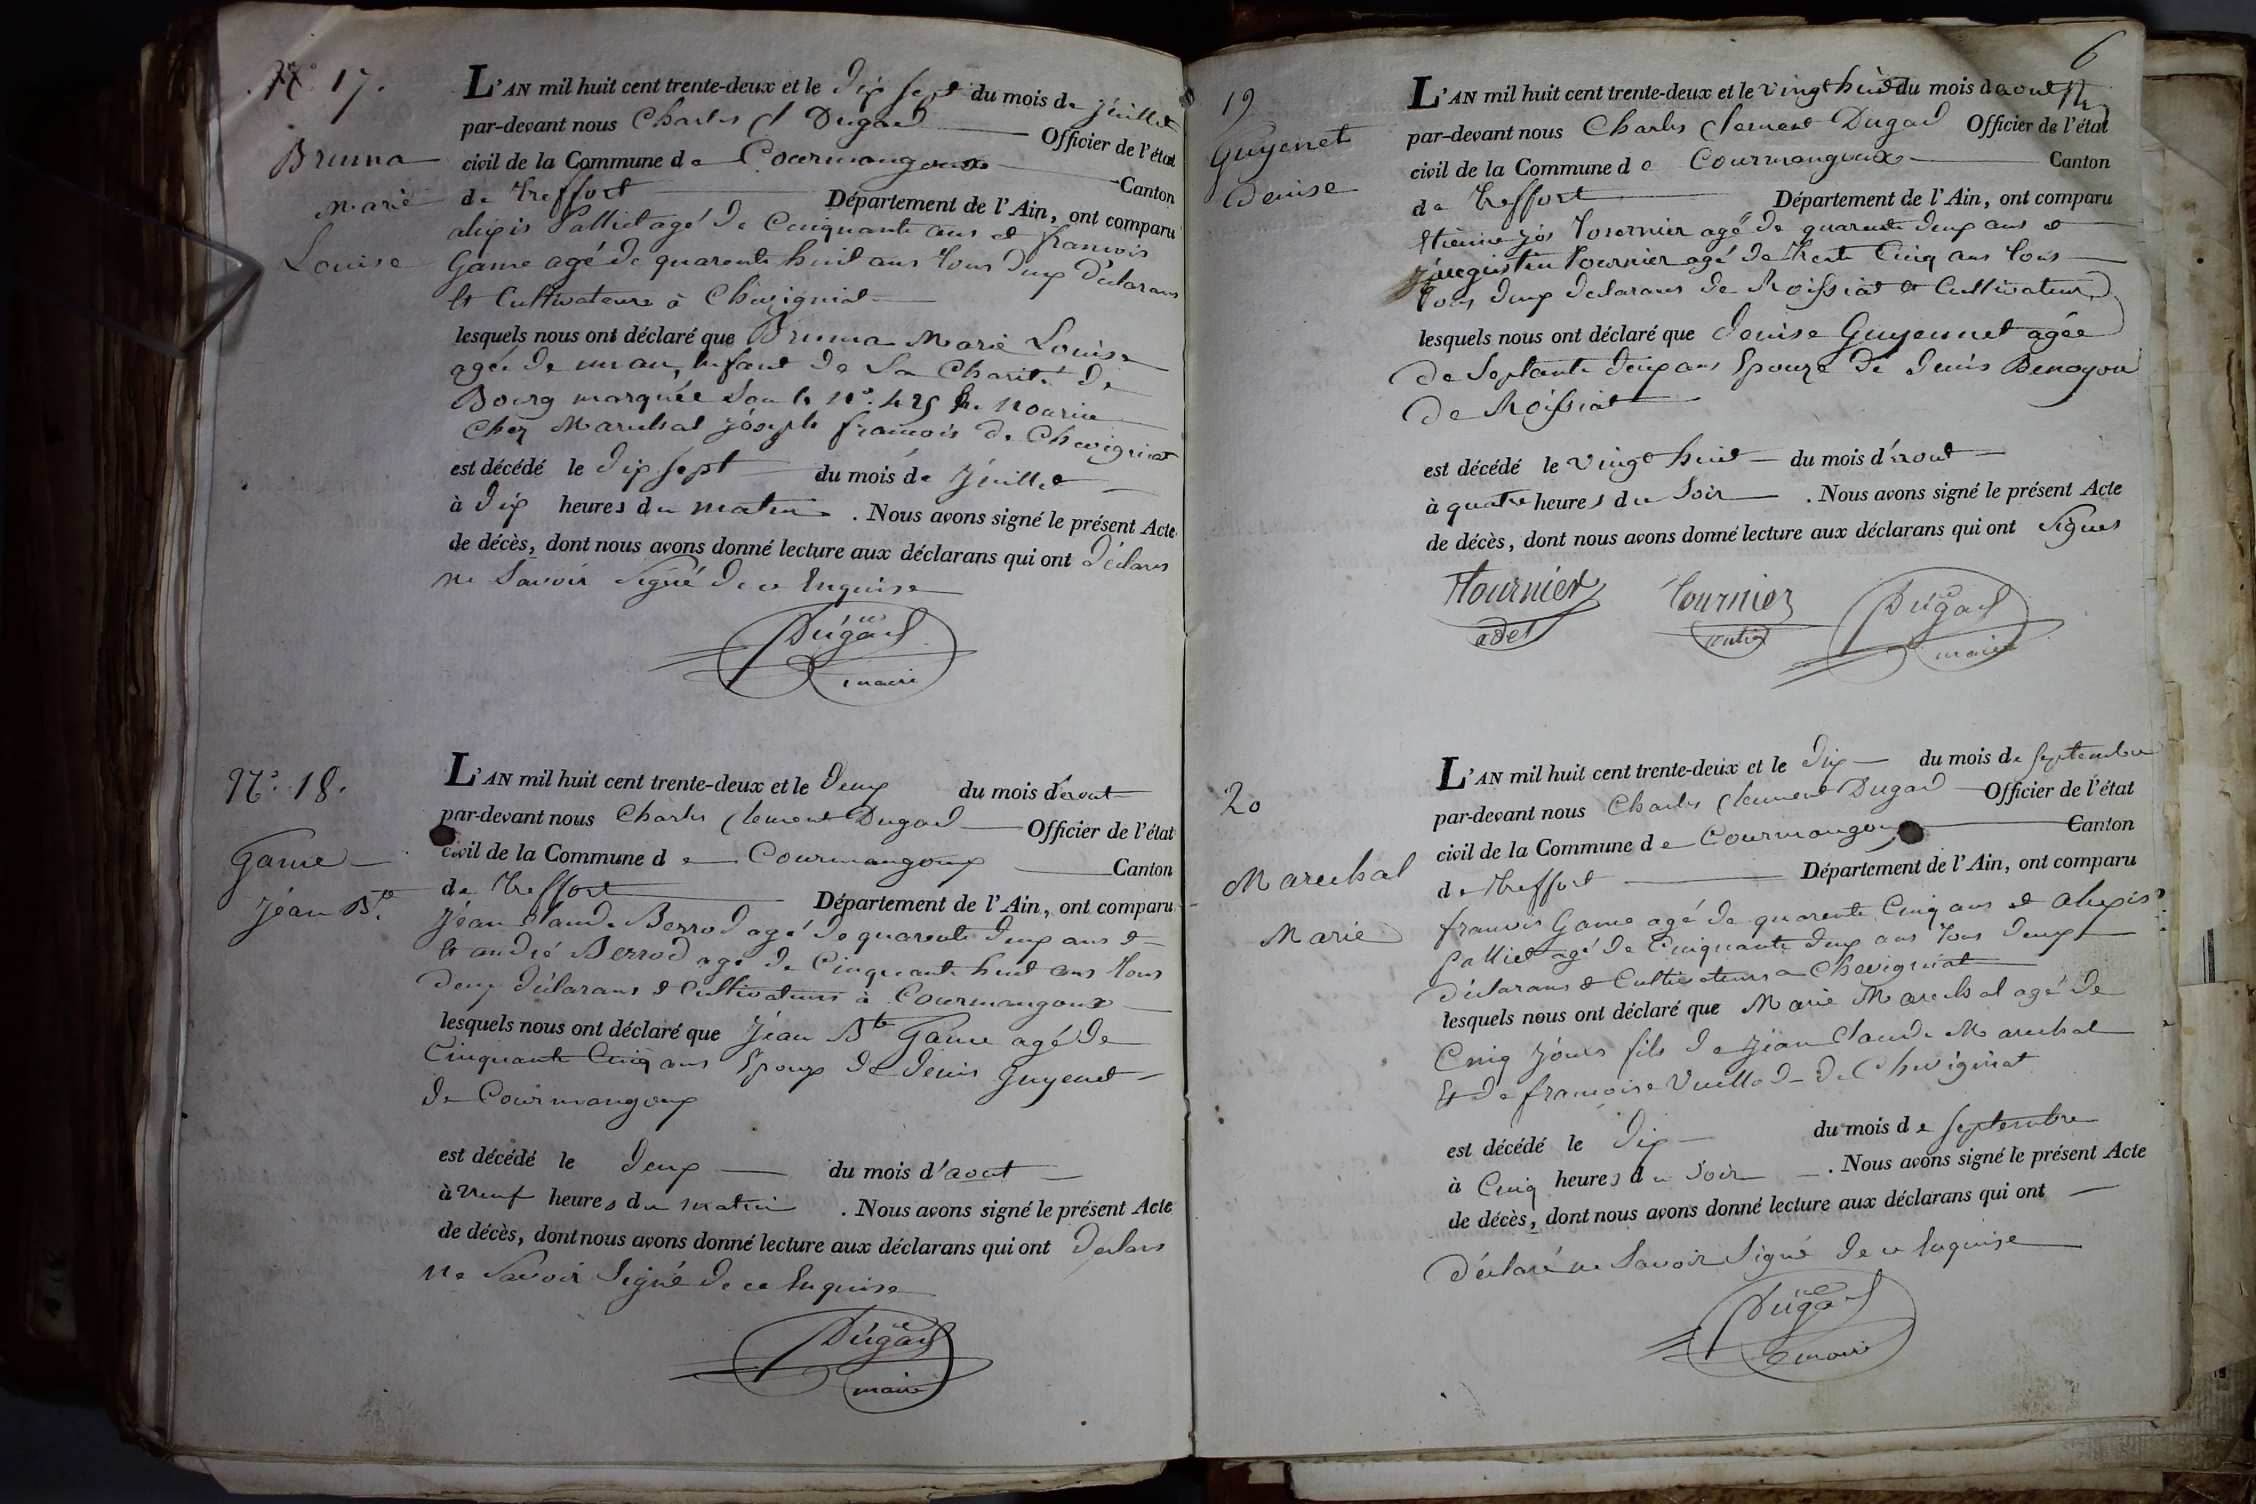 N.° 17.
Bruna
Marie
Louise
L'AN mil huit cent trente-deux et le dix sept du mois de juillet
par-devant nous Charles Ct Dugad Officier de l'état
civil de la Commune de Courmangoux Canton
de treffort Département de l'Ain, ont comparu
alexis Palliet agé de Cinquante ans et francois
Game agé de quarente huit ans tous deux déclarans
et Cultivateurs à Chevigniat
lesquels nous ont déclaré que Bruna Marie Louise
agée de un an, enfant de la Charité de
Bourg marquée sous le n°. 425 en nourice
Chez Marechal joseph francois de Chevigniat
est décédé le dix sept du mois de juillet
à dix heures du matin . Nous avons signé le présent Acte
de décès, dont nous avons donné lecture aux déclarans qui ont déclarés
ne Savoir Signé de ce Enquise
Dugad
maire
N.° 18.
Game
jéan Bte
L'AN mil huit cent trente-deux et le deux du mois d'aout
par-devant nous Charles Clement Dugad Officier de l'état
civil de la Commune de Courmangoux Canton
de treffort Département de l'Ain, ont comparu
jéan Claude Berrod agé de quarente deux ans et
et andré Berrod agé de Cinquante huit ans tous
deux déclarans et Cultivateurs à Courmangoux
lesquels nous ont déclaré que jéan Bte Game agé de
Cinquante Cinq ans Epoux de denis Guyenet
de Courmangoux
est décédé le deux du mois d'aout
à neuf heures du matin . Nous avons signé le présent Acte
de décès, dont nous avons donné lecture aux déclarans qui ont declars
ne Savoir Signé de ce Enquise
Dugad
maire
6
19
Guyennet
Denise
L'AN mil huit cent trente-deux et le vingt huit du mois d'aout
par-devant nous Charles Clement Dugad Officier de l'état
civil de la Commune de Courmangoux Canton
de treffort Département de l'Ain, ont comparu
Etienne jos tournier agé de quarente deux ans et
augustin tournier agé de trente Cinq ans tous
tous deux declarans de Roissiat et Cultivateurs
lesquels nous ont déclaré que denise Guyennet agée
de Septante deux ans Epouze de denis Benoyon
de Roissiat
est décédé le vingt huit du mois d'aout
à quatre heures du Soir . Nous avons signé le présent Acte
de décès, dont nous avons donné lecture aux déclarans qui ont Signes
Tournier Tournier Dugad
adet maire
20
Marechal
Marie
L'AN mil huit cent trente-deux et le dix du mois de septembre
par-devant nous Charles Clement Dugad Officier de l'état
civil de la Commune de Courmangoux Canton
de treffort Département de l'Ain, ont comparu
francois Game agé de quarente Cinq ans et alexis
Palliet agé de Cinquante deux ans tous deux
déclarans et Cultivateurs a Chevigniat
lesquels nous ont déclaré que Marie Marechal agé de
Cinq jours fils de jéan Claude Marechal
Et de francoise Vuillod de Chevigniat
est décédé le dix du mois de septembre
à Cinq heures du Soir . Nous avons signé le présent Acte
de décès, dont nous avons donné lecture aux déclarans qui ont
déclaré ne Savoir Signé de ce Enquise
Dugad
maire